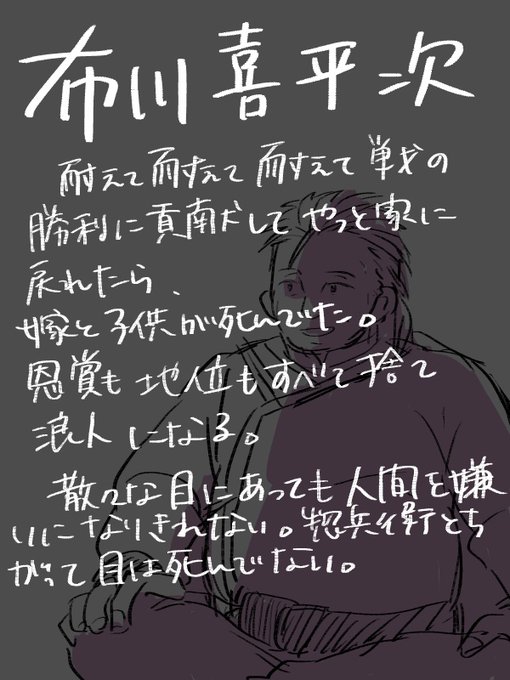 布川喜平次
耐えて耐えて耐えて戦の
勝利に貢献してやっと家に
戻れたら、
嫁と子供が死んでた。
恩賞も地位もすべて捨て
浪人になる。
散々な目にあっても人間を嫌
いになりきれない。惣兵衛とち
がって目は死んでない。